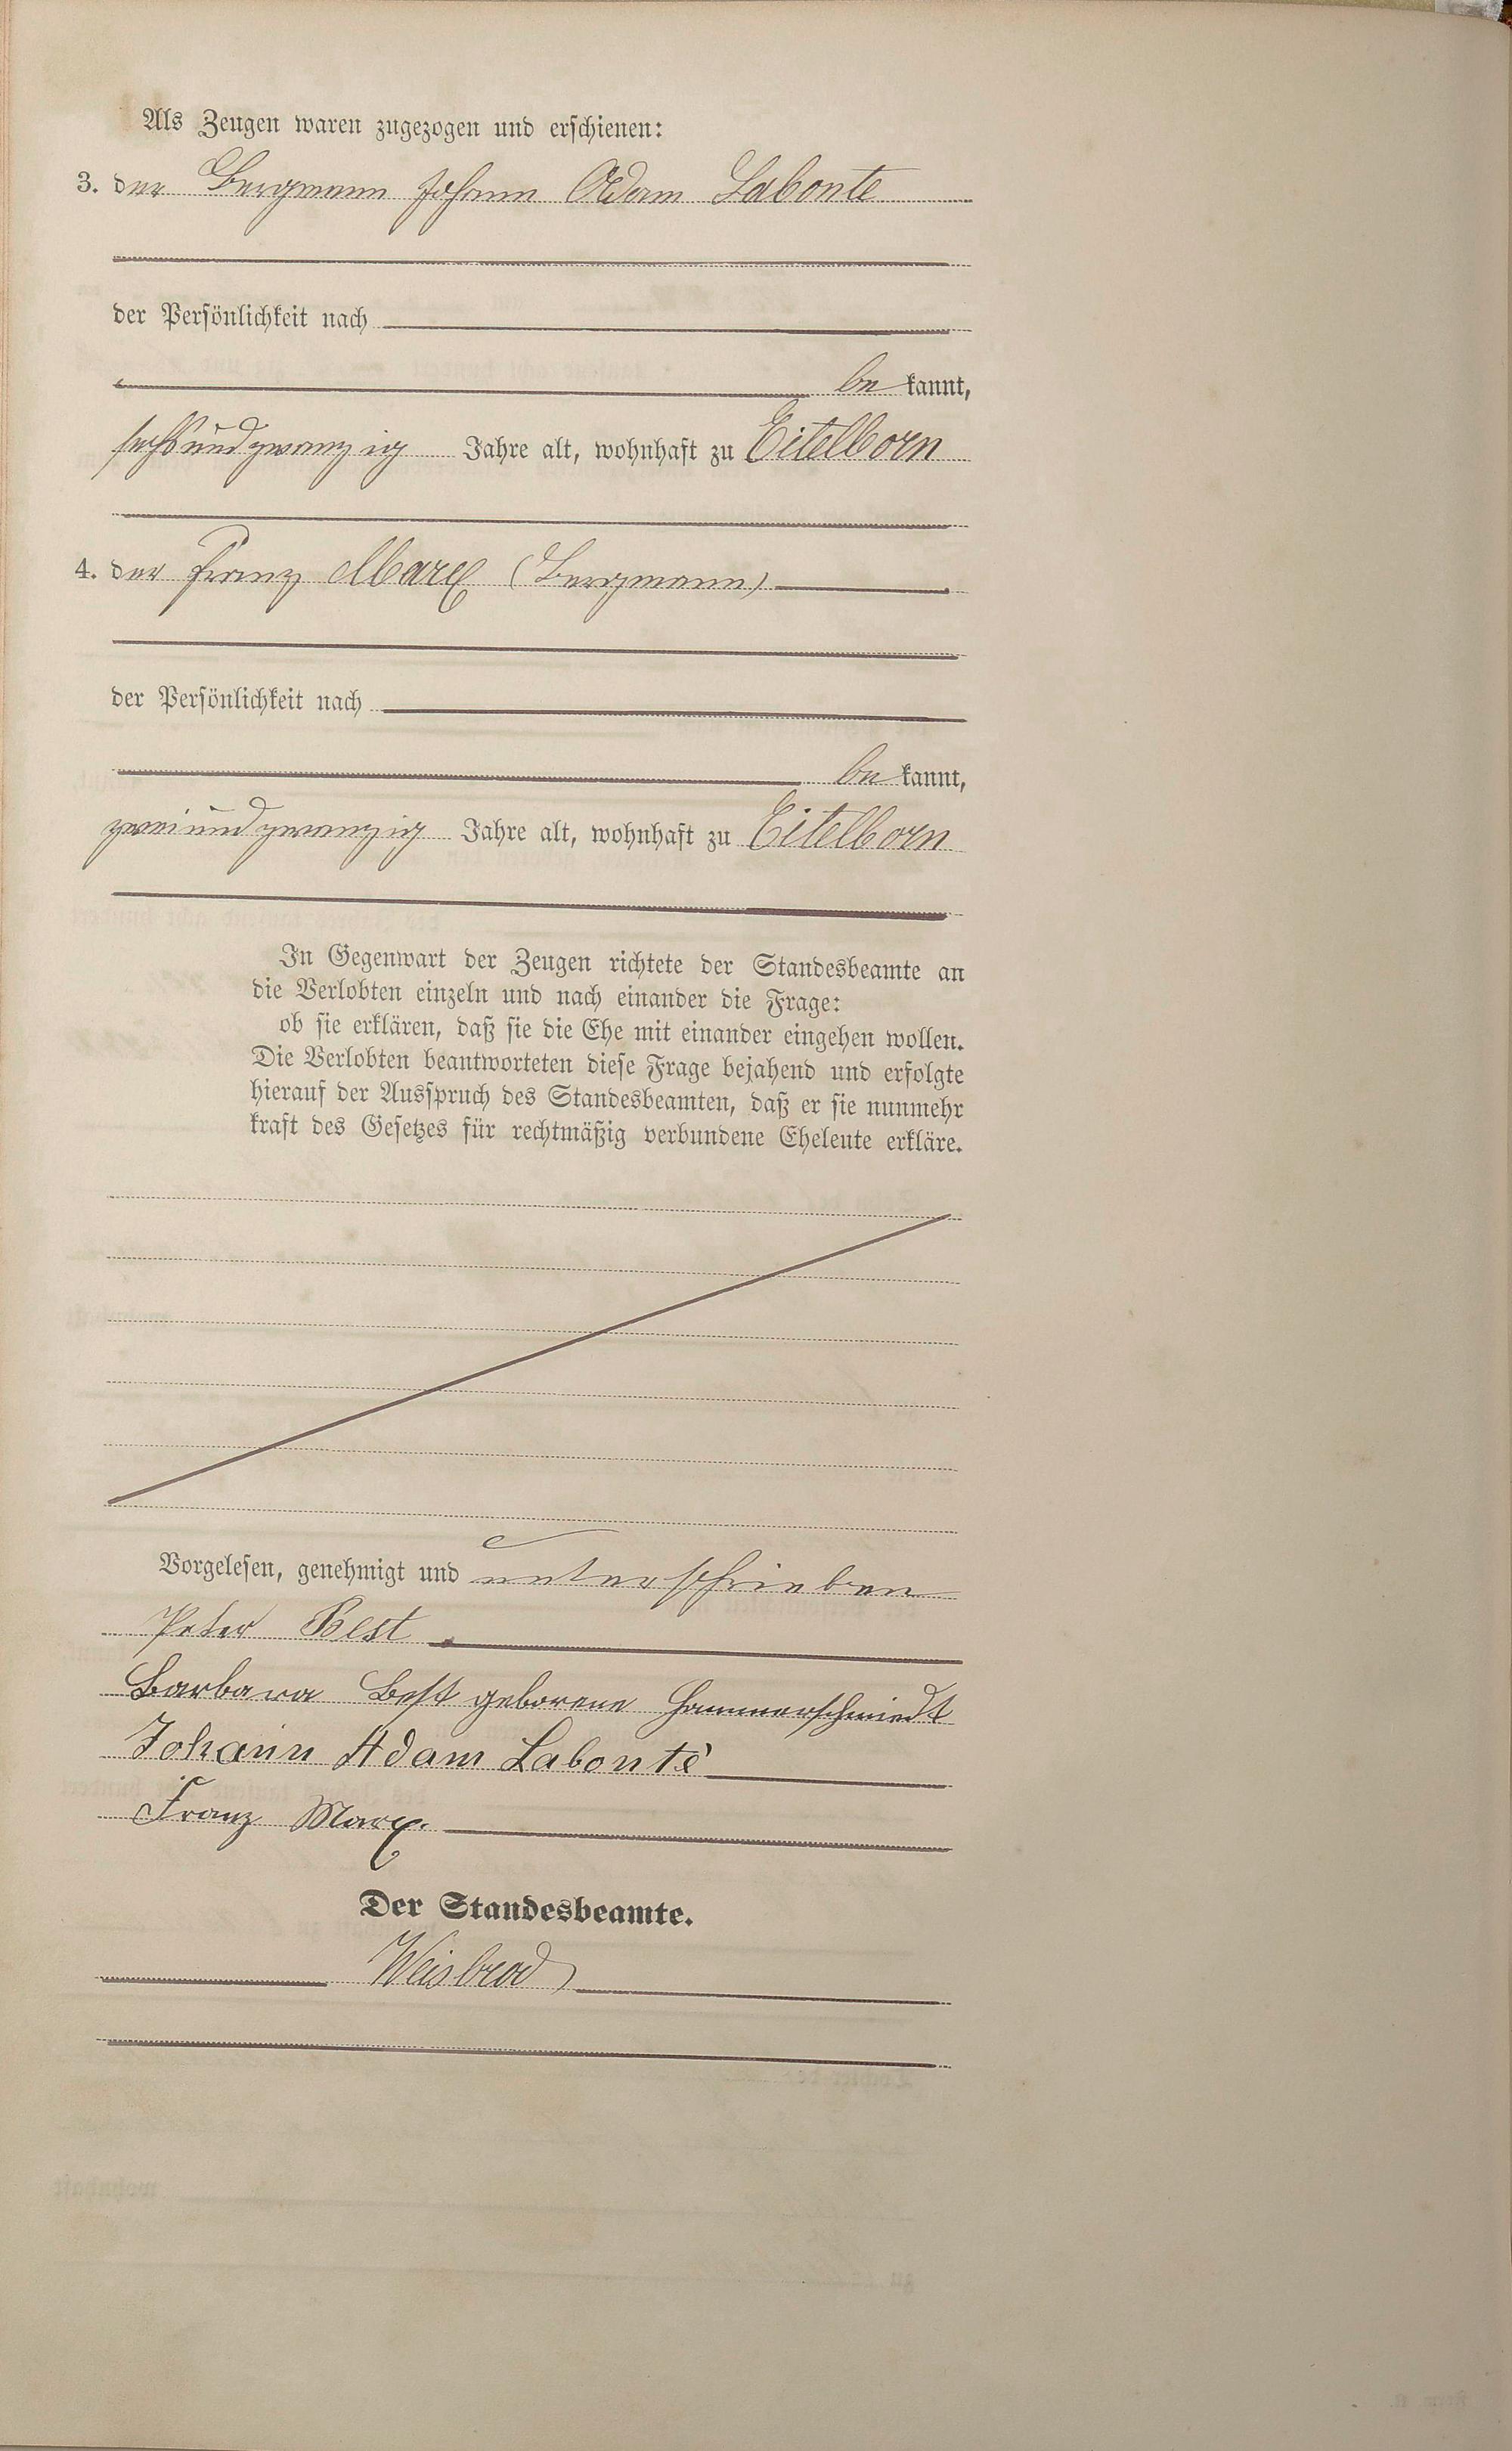 Als Zeugen waren zugezogen und erschienen:
3. der Bergmann Johann Adam Labonte
der Persönlichkeit nach
be kannt,
sechsundzwanzig Jahre alt, wohnhaft zu Eitelborn
4. der Franz Marx (Bergmann)
der Persönlichkeit nach
be kannt,
zweiundzwanzig Jahre alt, wohnhaft zu Eitelborn
In Gegenwart der Zeugen richtete der Standesbeamte an
die Verlobten einzeln und nach einander die Frage:
ob sie erklären, daß sie die Ehe mit einander eingehen wollen.
Die Verlobten beantworteten diese Frage bejahend und erfolgte
hierauf der Ausspruch des Standesbeamten, daß er sie nunmehr
kraft des Gesetzes für rechtmäßig verbundene Eheleute erkläre.
Vorgelesen, genehmigt und unterschrieben
Peter Best
Barbara Best geborene Hammerschmiedt
Johann Adam Labonté
Franz Marx.
Der Standesbeamte.
Weisbrod